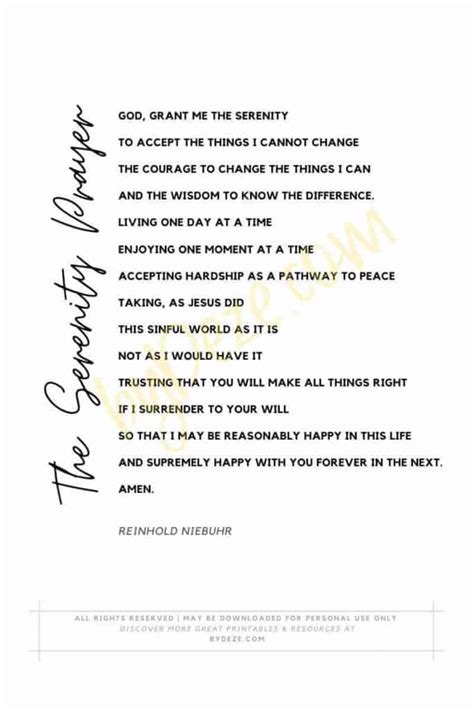 The Serenity Prayer
GOD, GRANT ME THE SERENITY
TO ACCEPT THE THINGS I CANNOT CHANGE
THE COURAGE TO CHANGE THE THINGS I CAN
AND THE WISDOM TO KNOW THE DIFFERENCE.
LIVING ONE DAY AT A TIME
ENJOYING ONE MOMENT AT A TIME
ACCEPTING HARDSHIP AS A PATHWAY TO PEACE
TAKING, AS JESUS DID
THIS SINFUL WORLD AS IT IS
NOT AS I WOULD HAVE IT
TRUSTING THAT YOU WILL MAKE ALL THINGS RIGHT
IF I SURRENDER TO YOUR WILL
SO THAT I MAY BE REASONABLY HAPPY IN THIS LIFE
AND SUPREMELY HAPPY WITH YOU FOREVER IN THE NEXT.
AMEN.
REINHOLD NIEBUHR
byDeze.com
ALL RIGHTS RESERVED | MAY BE DOWNLOADED FOR PERSONAL USE ONLY
DISCOVER MORE GREAT PRINTABLES & RESOURCES AT
BYDEZE.COM